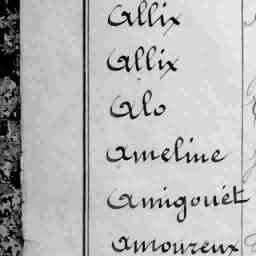 Allix
Allix
Alo
Ameline
Amigouët
Amoureux